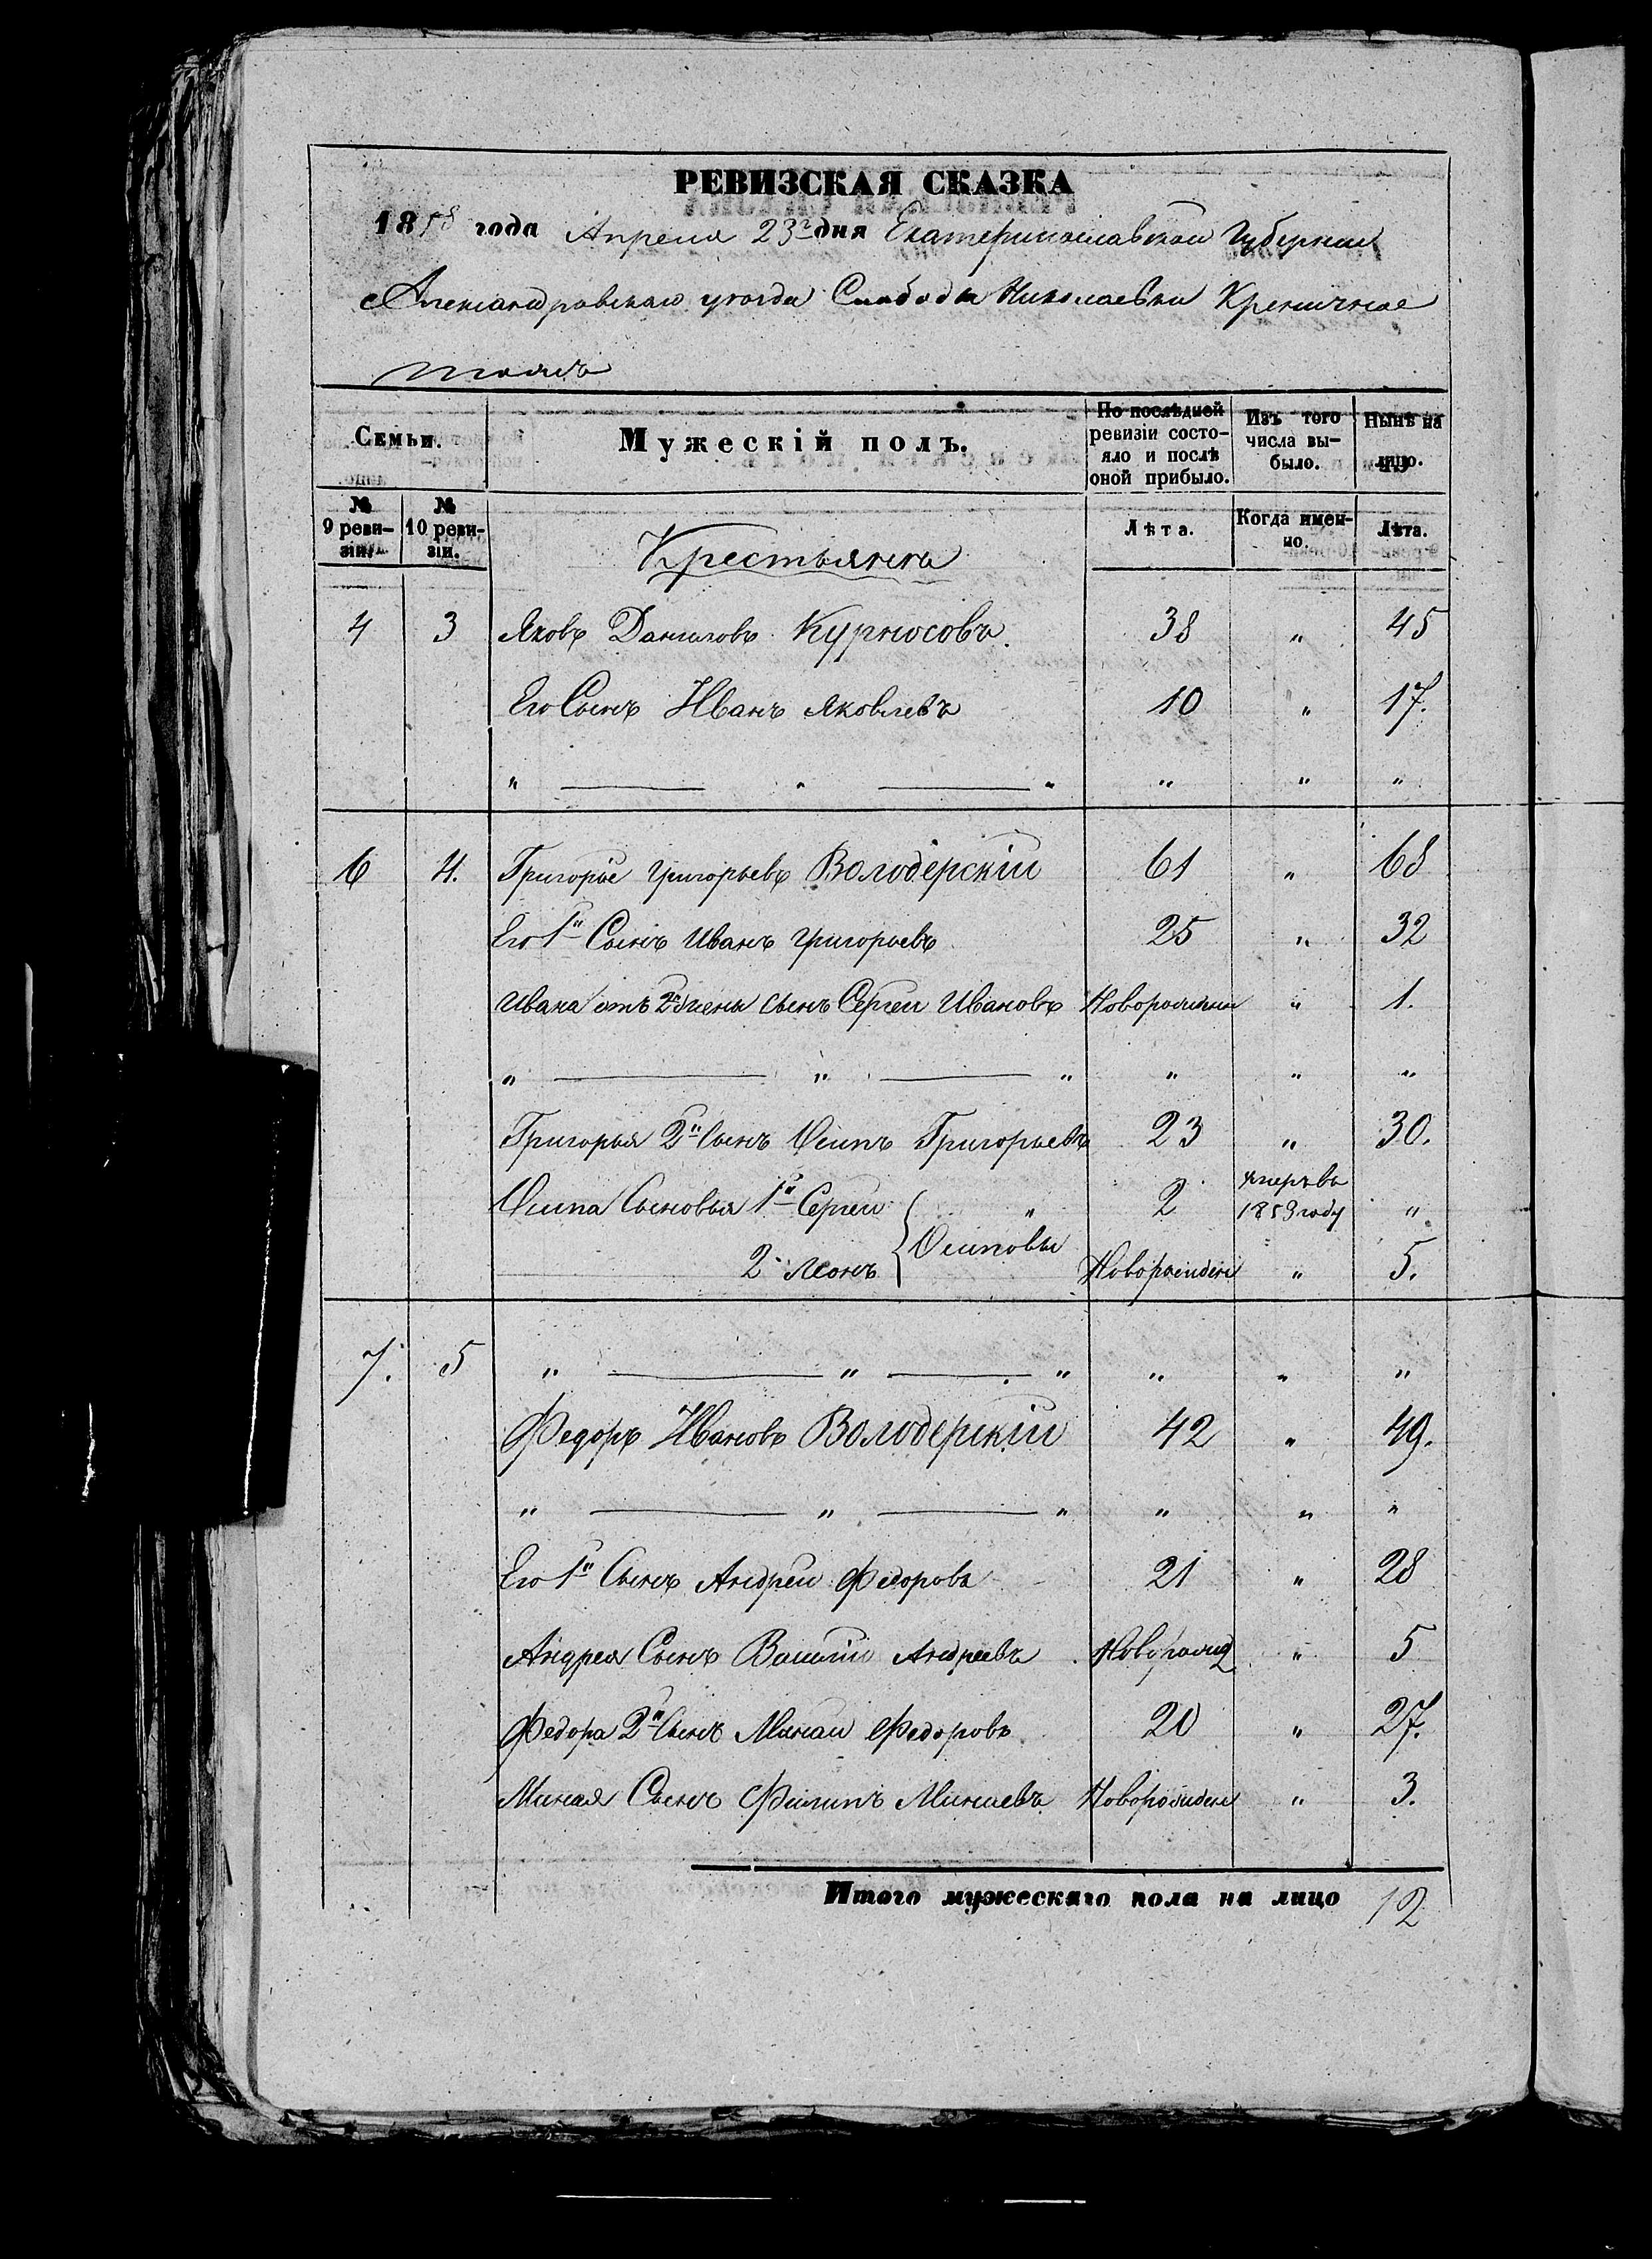 РЕВИЗСКАЯ СКАЗКА
1858 года Апреля 23го дня Екатеринославской Губернии
Александровскаго уезда Слободы Николаевки Креничное
тожъ
Семьи.
Мужескій полъ.
По послѣдней ревизіи состояло и послѣ оной прибыло.
Изъ того числа выбыло.
Нынѣ на лицо.
№ 9 ревизіи.
№ 10 ревизіи.
Крестьяне
Лѣта.
Когда именно.
Лѣта.
4 3 Яковъ Даниловъ Курносовъ. 38 " 45
Его Сынъ Иванъ Яковлевъ 10 " 17.
" — " — " " " "
6 4. Григоріе Григорьевъ Володерскій 61 " 68
Его 1й Сынъ Иванъ Григорьевъ 25 " 32
Ивана отъ 2й жены сынъ Сергей Ивановъ " 1.
" — " — " " " "
Григорья 2й Сынъ Осипъ Григорьевъ 23 " 30.
Осипа Сыновья 1й Сергей " 2 умеръ въ 1853 году "
2й Леонъ Осиповы Новорожден " 5.
7. 5 " — " — " " " "
Федоръ Ивановъ Володерскій 42 " 49.
" — " — " " " "
Его 1й Сынъ Андрей Федоровъ 21 " 28
Андрея Сынъ Василій Андреевъ Новорожд " 5
Федора 2й Сынъ Минай Федоровъ 20 " 27.
Миная Сынъ Филипъ Минаевъ Новорожден " 3.
Итого мужескаго пола на лицо 12